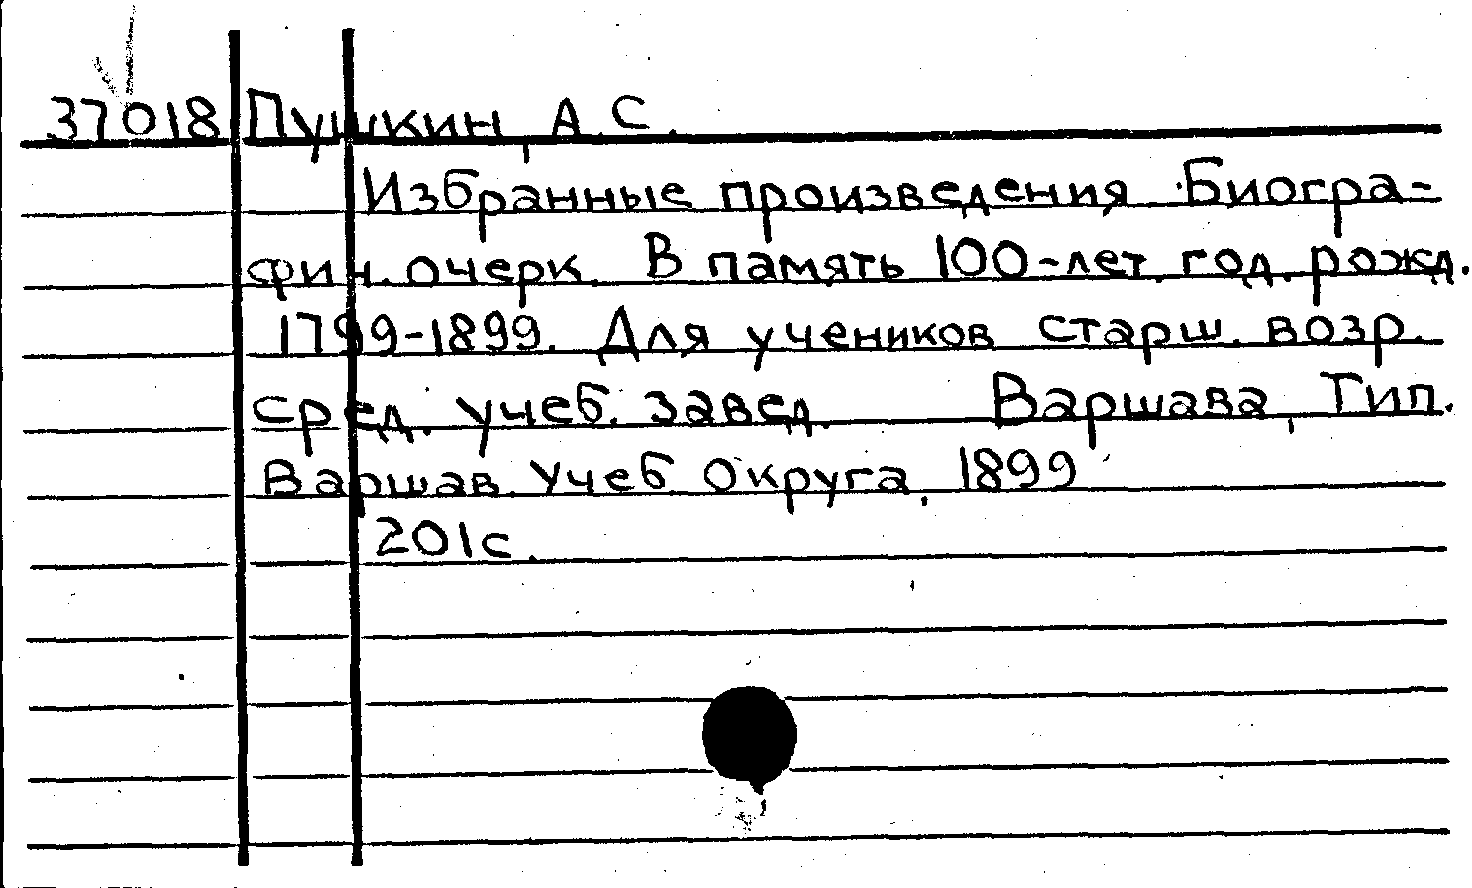 37018 Пушкин, А.С.
Избранные произведения. Биогра-
фич. очерк. В память 100-лет. год. рожд.
1799-1899. Для учеников старш. возр.
сред. учеб. завед. Варшава, Тип.
Варшав. Учеб. Округа, 1899
201с.